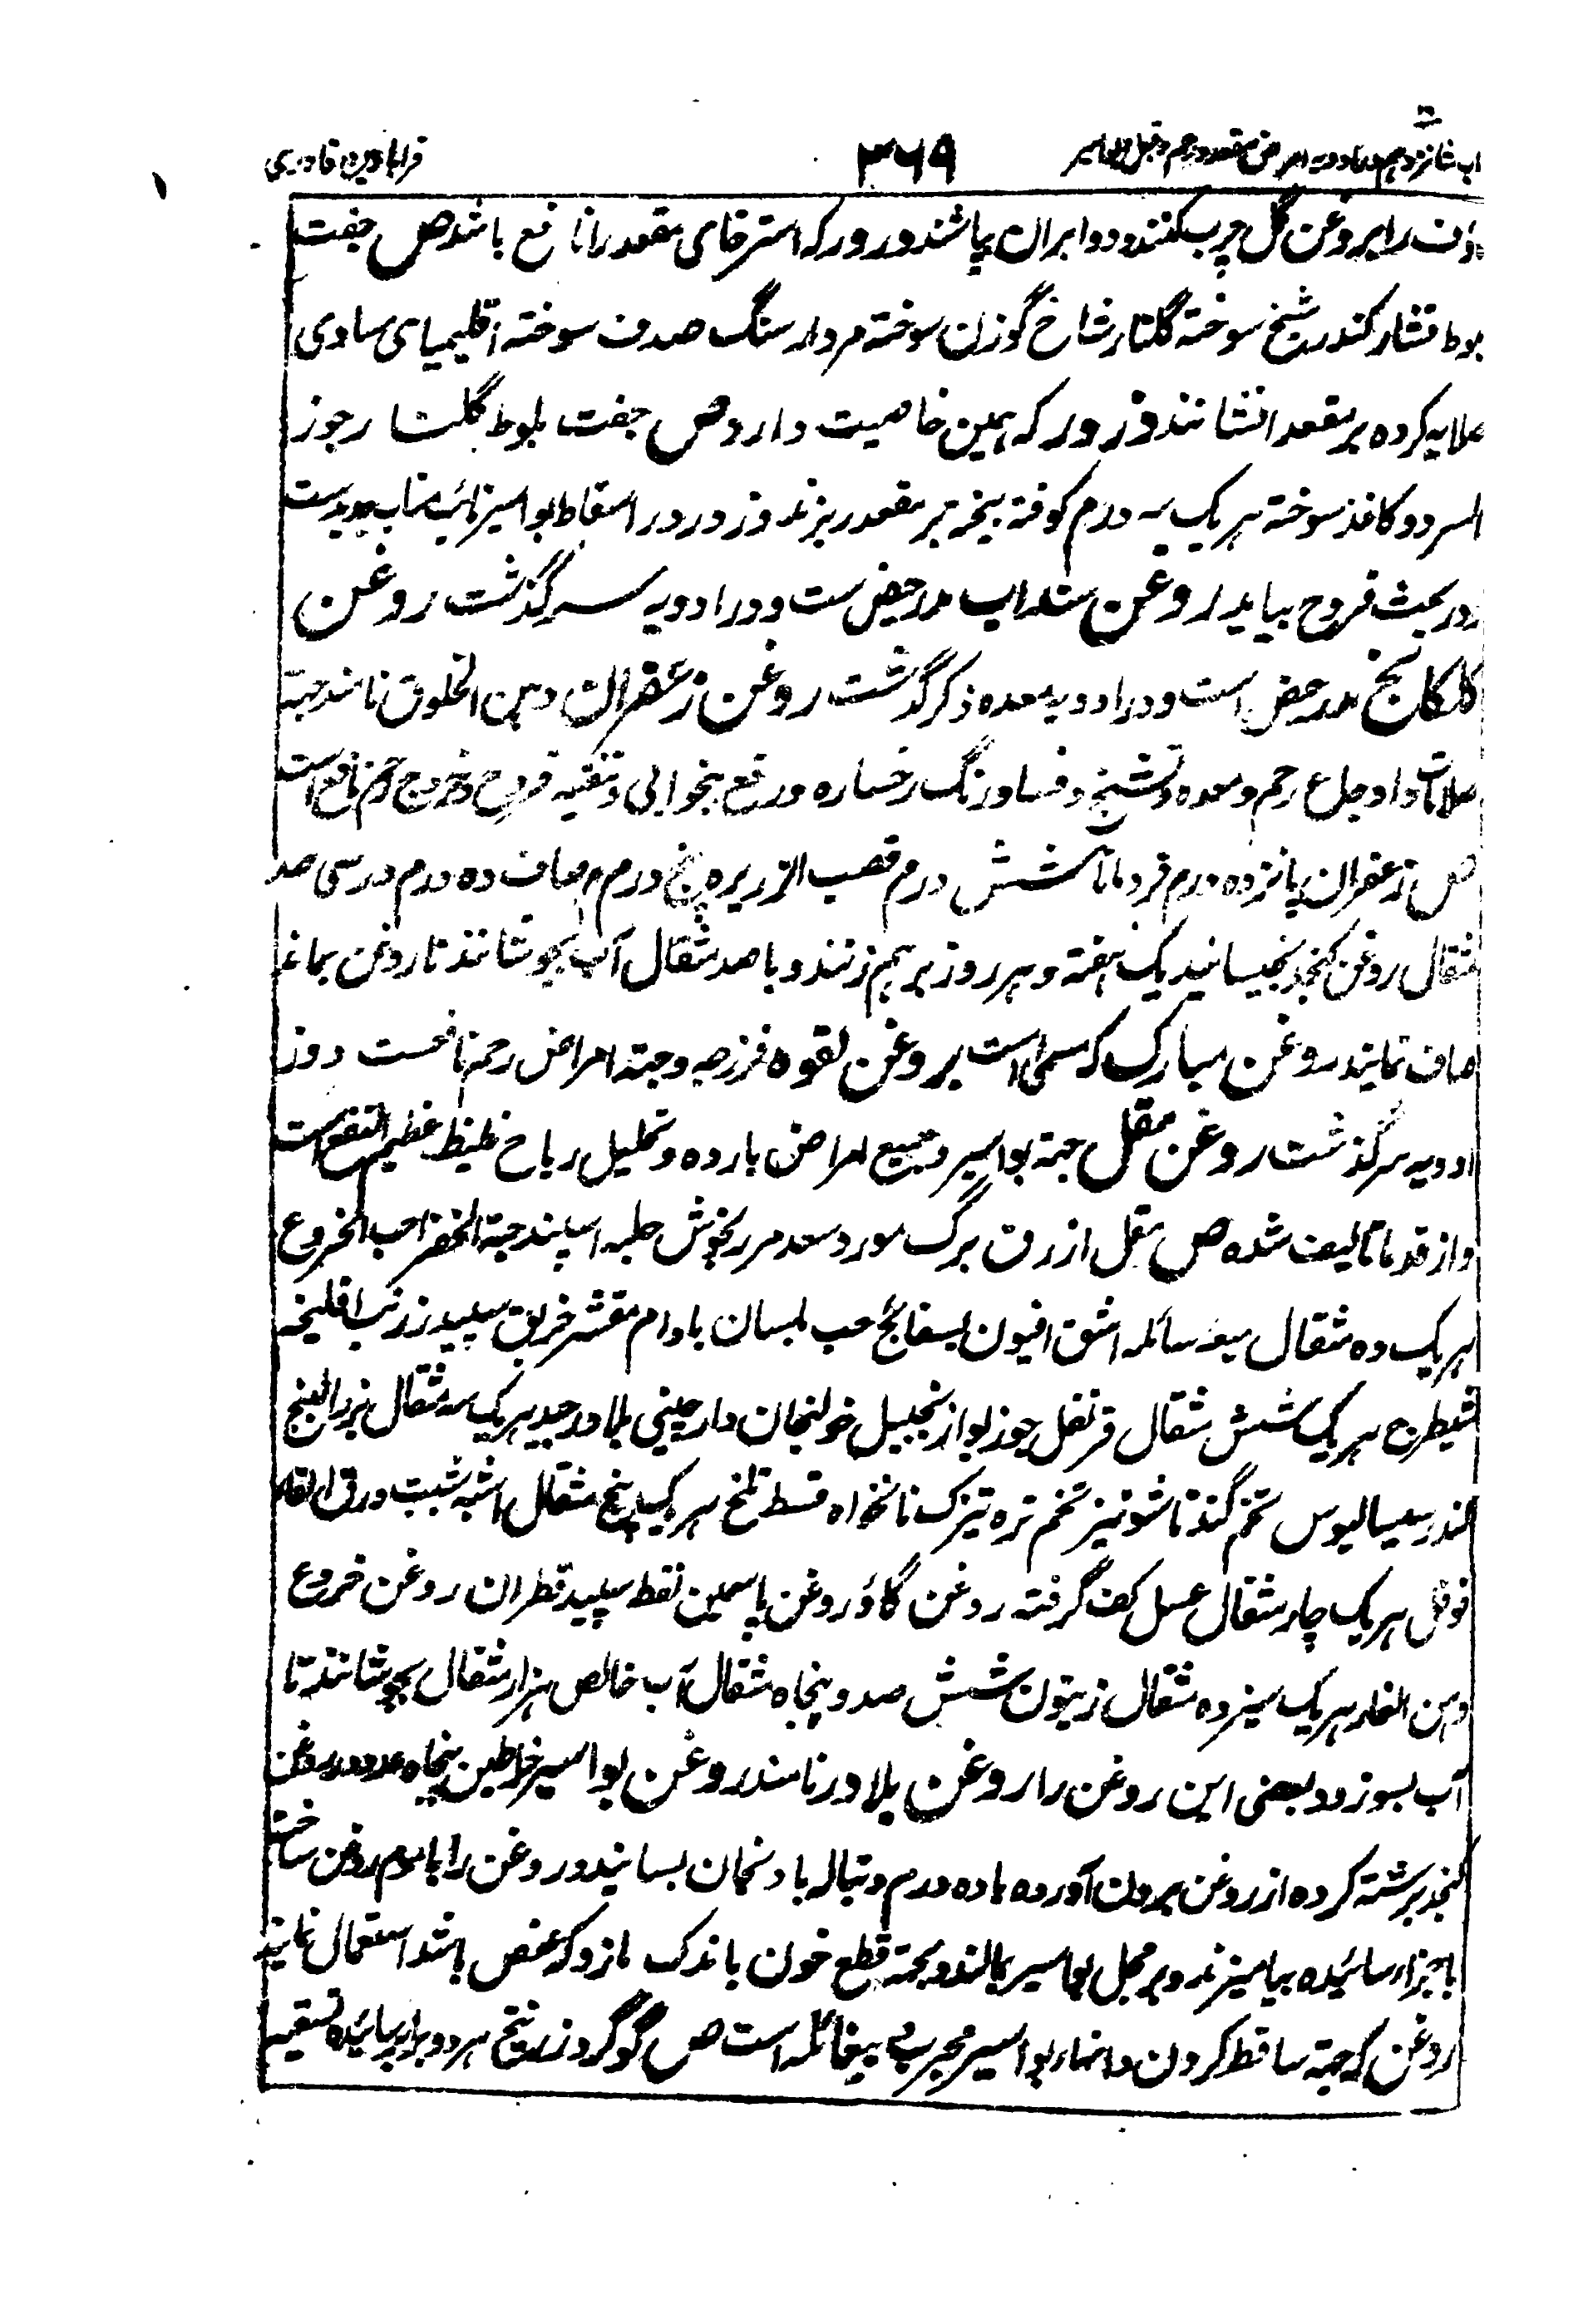 باب شانزدهم در ادویه امراض مقعد و رحم و قبل و بواسیر ۳۶۹ قرابادین قادری
را بروغن گل چرب کنند و دوا بران پاشند ذرور که استرخای مقعد را نافع باشد ص جفت
بلوط قشار کندر شیح سوخته گلنار شاخ گوزن سوخته مردار سنگ صدف سوخته اقلیمیا مساوی
صلایه کرده بر مقعد افشانند ذرور که همین خاصیت دارد ص جفت بلوط گلنار جوز
السرو و کاغذ سوخته هریک سه درم کوفته بیخته بر مقعد ریزند ذرور در اسقاط بواسیر نائب مناب حدیدست
در بحث قروح بیاید روغن سنداب مدر حیض ست و در ادویه سر گذشت روغن
کلکلانج مدر حیض است و در ادویه معده ذکر گذشت روغن زعفران دهن الخلوق نامند جهة
صلابات و اوجاع رحم و معده و تشنج و فساد رنگ رخساره و رفع بیخوابی و تنقیه قروح و خروج رحم نافع است
ص زعفران پانزده درم قردمانا شش درم قصب الزریره پنج درم مر صاف ده درم در سی صد
مثقال روغن کنجد بخیسانند یک هفته و هر روز برهم زنند و با صد مثقال آب بجوشانند تا روغن بماند
صاف نمایند روغن مبارک که مسمی است بروغن لقوه فرزجه و جهة امراض رحم نافعست و در
ادویه سر گذشت روغن مقل جهة بواسیر و جمیع امراض بارده و تحلیل ریاح غلیظ عظیم النفع است
و از قدما تالیف شده ص مقل ازرق برگ مورد سعد مرزنجوش حلبه اسپند حبة الخضرا حب الخروع
هریک ده مثقال میعه سائله اشق افیون بسفائج حب بلسان بادام مقشر خربق سپید زرنب افلیخه
شیطرج هریک شش مثقال قرنفل جوزبوا زنجبیل خولنجان دارچینی بلادر جید هریک سه مثقال بزرالبنج
کندر سیسالیوس تخم گندنا شونیز تخم تره تیزک نانخواه قسط تلخ هریک پنج مثقال اشنه شبت ورق الغار
فوفل هریک چار مثقال عسل کف گرفته روغن گاؤ روغن یاسمین نفط سپید قطران روغن خروع
دهن الغار هریک سیزده مثقال زیتون شش صد و پنجاه مثقال آب خالص هزار مثقال بجوشانند تا
آب بسوزد و بعضی این روغن را روغن بلادر نامند روغن بواسیر خراطین پنجاه عدد در روغن
کنجد برشته کرده از روغن بیرون آورده با ده درم دنباله بادنجان بسایند و روغن را با موم روغن ساخته
با اجزاء سائیده بیامیزند و بر محل بواسیر بمالند و بجهة قطع خون باندک مازو که عفص باشد استعمال نمایند
روغن که جهة ساقط کردن دانهای بواسیر مجرب بیغائله است ص گوگرد زرنیخ هر دو برابر سائیده تسقیه